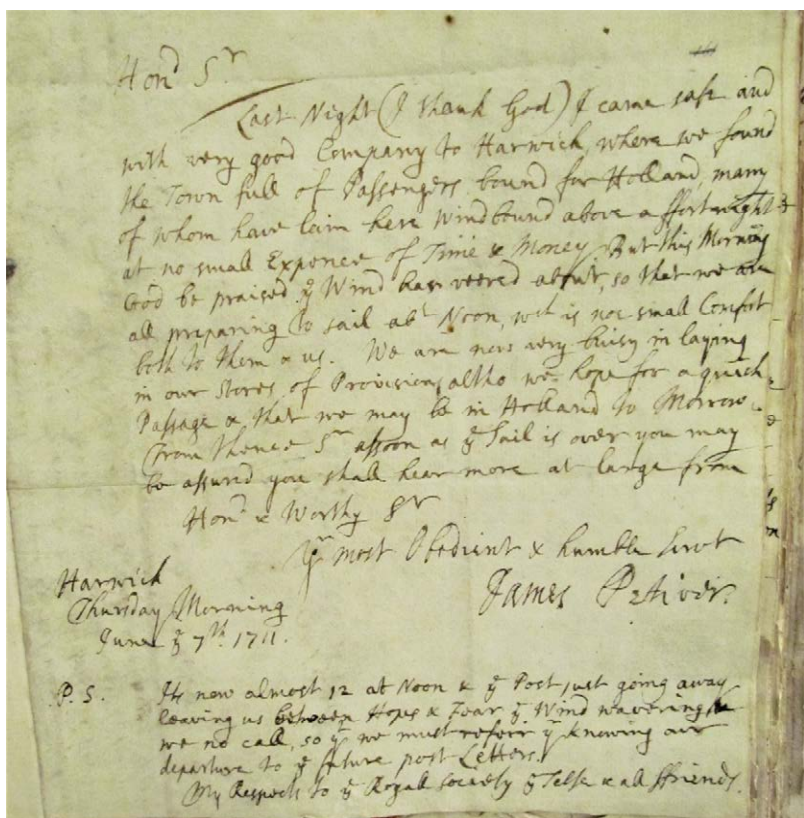 Hond Sr
Last Night (I thank God) I came safe and
with very good Company to Harwich, where we found
the Town full of Passengers bound for Holland, many
of whom have lain here Windbound above a ffortnight
at no small Expence of Time & Money. But this Morning
God be praised ye Wind has veered about, so that we are
all preparing to sail abt Noon, wch is no small Comfort
both to them & us. We are now very buisy in laying
in our Stores of Provisions, altho we hope for a quick
Passage & that we may be in Holland to Morrow.
From thence Sr assoon as ye Sail is over you may
be assured you shall hear more at large from
Hond & Worthy Sr
Yr most Obedient & humble Servt
James Petiver.
Harwich
Thursday Morning
June ye 7th. 1711.
P.S. Its now almost 12 at Noon & ye Post just going away
leaving us between Hope & Fear ye Wind wavering &
we no call, so yt we must referr ye knowing our
departure to ye future post Letters.
My Respects to ye Royall Society ye Selfe & all ffriends.